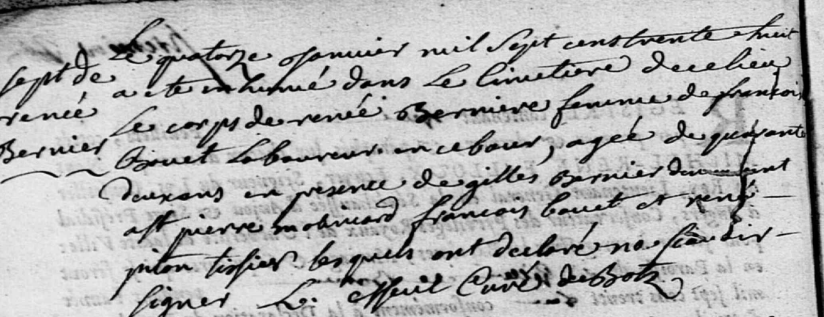 sept. de
renée
Bernier
Le quatorze Janvier mil sept cens trente huit
a ete inhumé dans Le Cimetiere de ce lieu
Le corps de renée Berniere femme de francois
Bouet Laboureur en ce bour, agée de quarante
deux ans en presence de gilles Bernier
pierre francois bouet et rené
tissier lesquels ont declaré ne scavoir
signer L. Curé de Botz